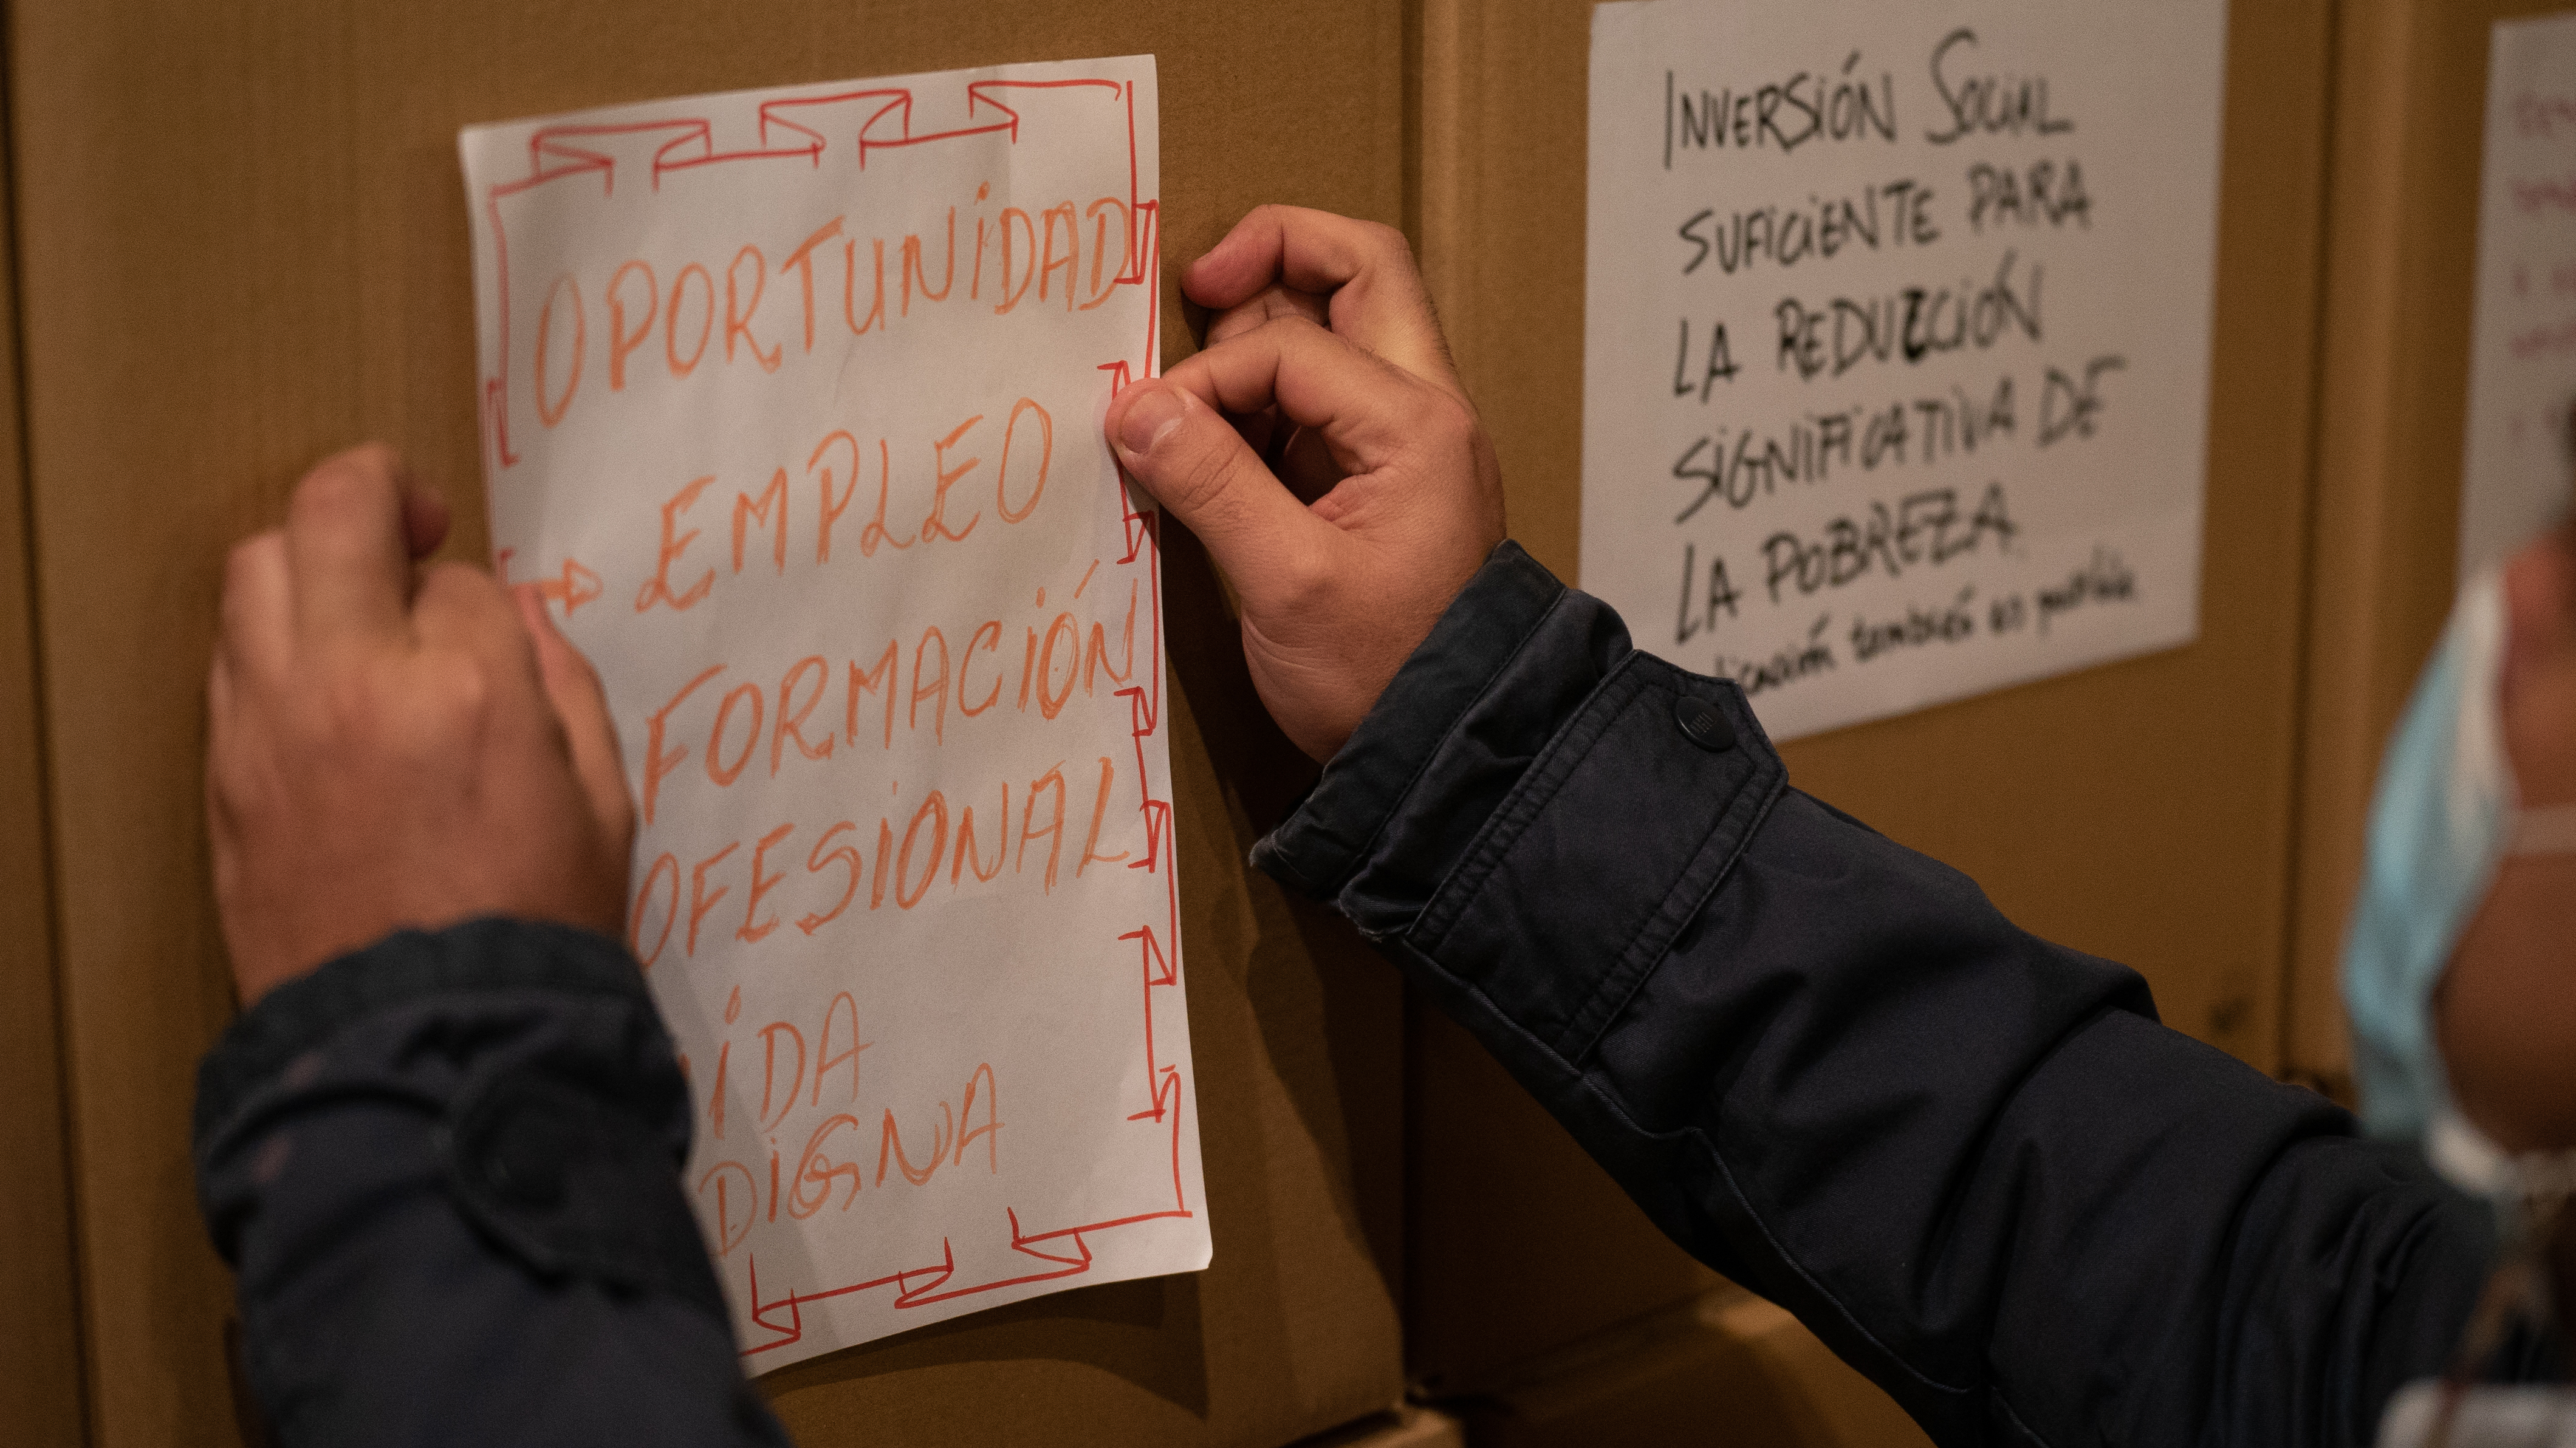 OPORTUNIDAD
EMPLEO
FORMACIÓN
OFESIONAL
IDA
DIGNA
INVERSIÓN SOCIAL
SUFICIENTE PARA
LA REDUCCIÓN
SIGNIFICATIVA DE
LA POBREZA
también en